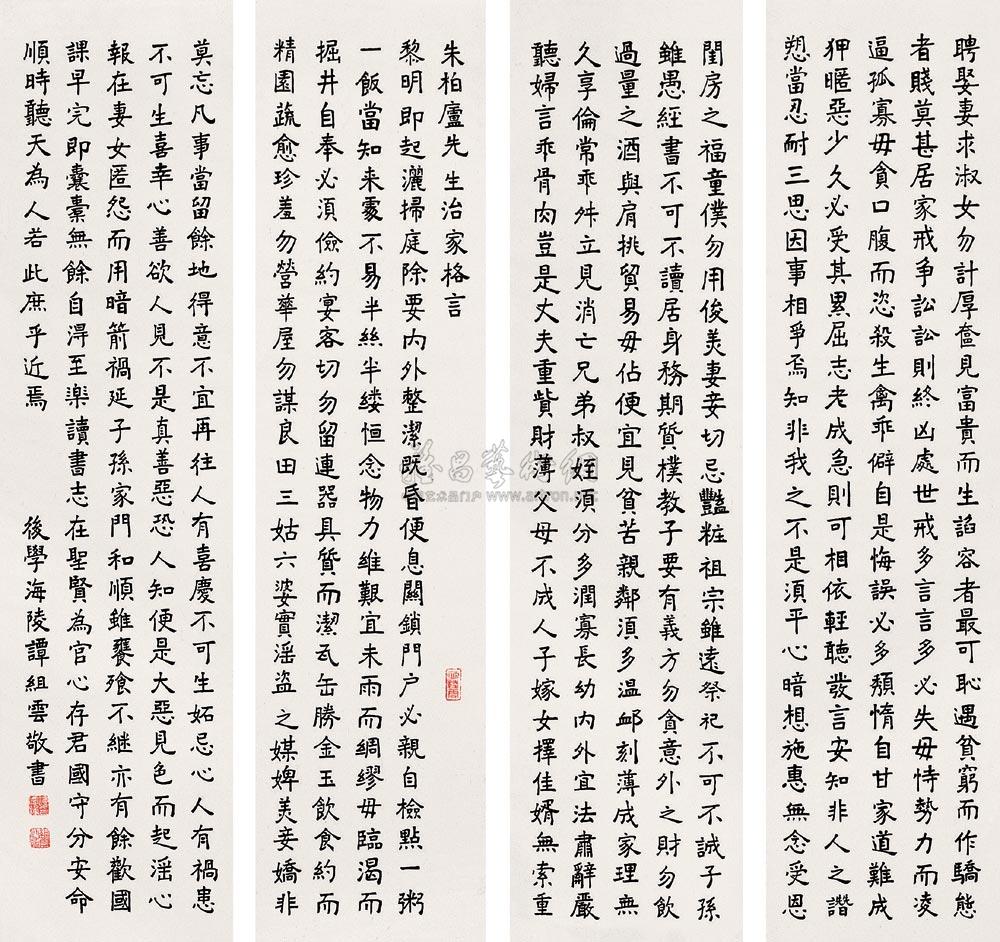 朱柏廬先生治家格言
黎明即起灑掃庭除要內外整潔既昏便息關鎖門戶必親自檢點一粥
一飯當知来處不易半絲半縷恒念物力維艱宜未雨而綢繆毋臨渴而
掘井自奉必須儉約宴客切勿留連器具質而潔瓦缶勝金玉飲食約而
精園蔬愈珍羞勿營華屋勿謀良田三姑六婆實淫盜之媒婢美妾嬌非
閨房之福童僕勿用俊美妻妾切忌豔粧祖宗雖遠祭祀不可不誠子孫
雖愚經書不可不讀居身務期質樸教子要有義方勿貪意外之財勿飲
過量之酒與肩挑貿易毋佔便宜見貧苦親鄰須多温卹刻薄成家理無
久享倫常乖舛立見消亡兄弟叔姪須分多潤寡長幼內外宜法肅辭嚴
聽婦言乖骨肉豈是丈夫重貲財薄父母不成人子嫁女擇佳婿無索重
聘娶妻求淑女勿計厚奩見富貴而生諂容者最可恥遇貧窮而作驕態
者賤莫甚居家戒爭訟訟則終凶處世戒多言言多必失毋恃勢力而凌
逼孤寡毋貪口腹而恣殺生禽乖僻自是悔誤必多頹惰自甘家道難成
狎暱惡少久必受其累屈志老成急則可相依輕聽發言安知非人之譖
愬當忍耐三思因事相爭焉知非我之不是須平心暗想施惠無念受恩
莫忘凡事當留餘地得意不宜再往人有喜慶不可生妬忌心人有禍患
不可生喜幸心善欲人見不是真善惡恐人知便是大惡見色而起淫心
報在妻女匿怨而用暗箭禍延子孫家門和順雖饔飱不継亦有餘歡國
課早完即囊橐無餘自得至樂讀書志在聖賢為官心存君國守分安命
順時聽天為人若此庶乎近焉
後學海陵譚組雲敬書